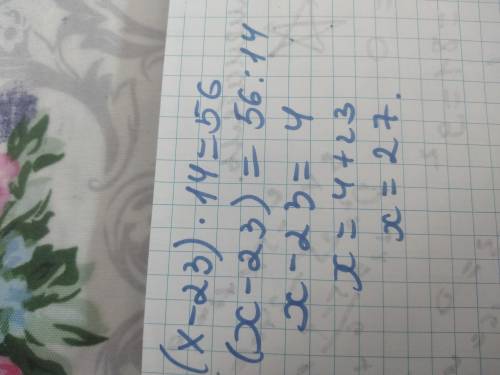 (x-23)·14=56
(x-23)=56:14
x-23=4
x=4+23
x=27.